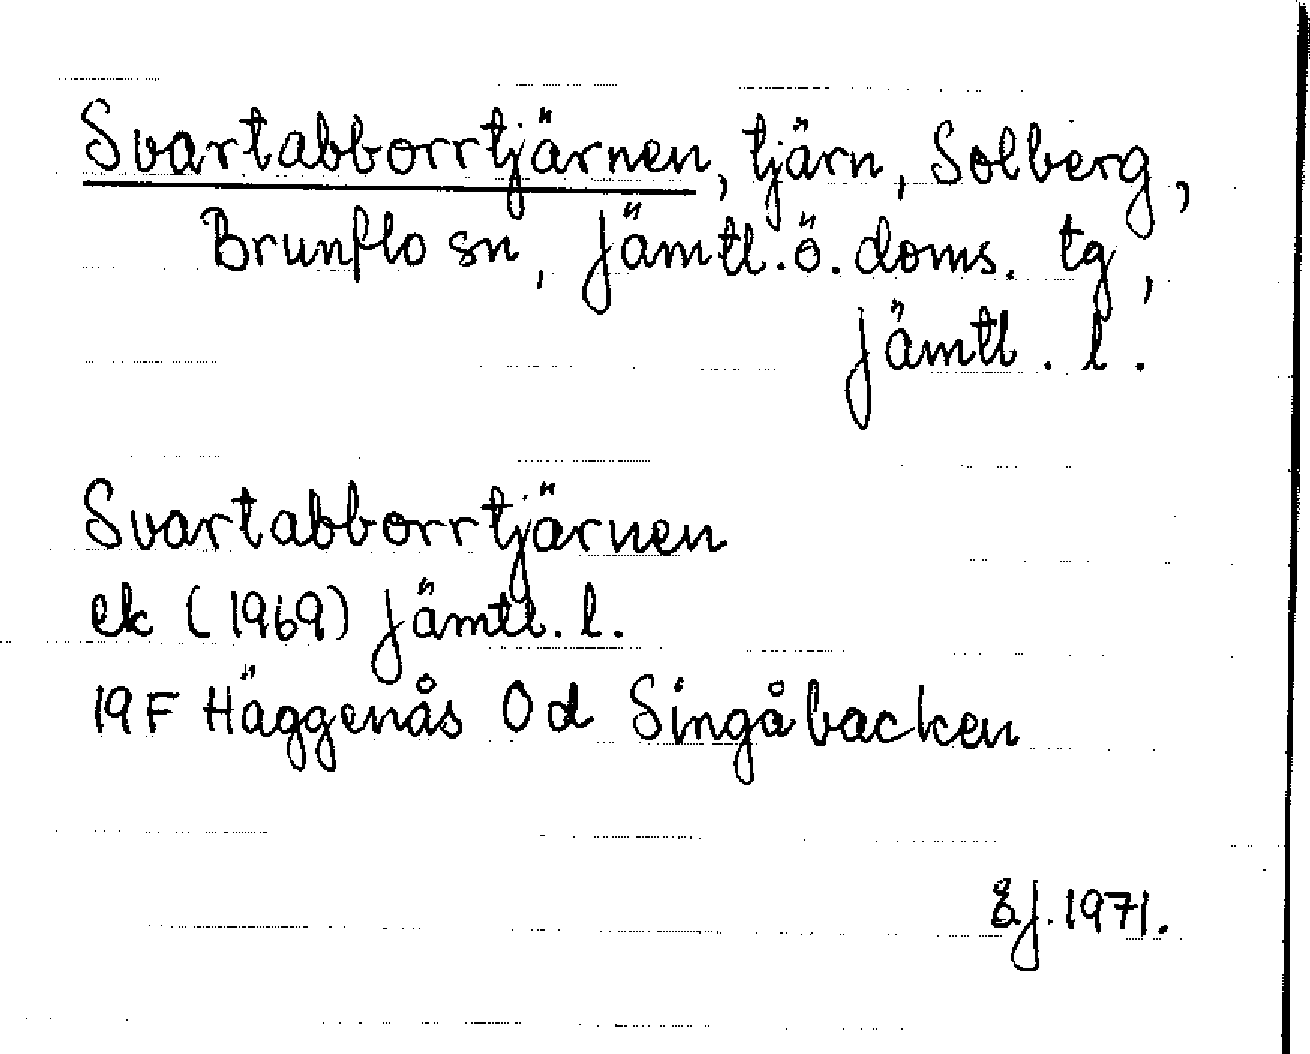 Svartabborrtjärnen, tjärn, Solberg,
Brunflo sn, Jämtl. ö. doms. tg,
Jämtl. l.
Svartabborrtjärnen
ek (1969) Jämtl. l.
19F Häggenås 0d Singåbacken
EJ. 1971.